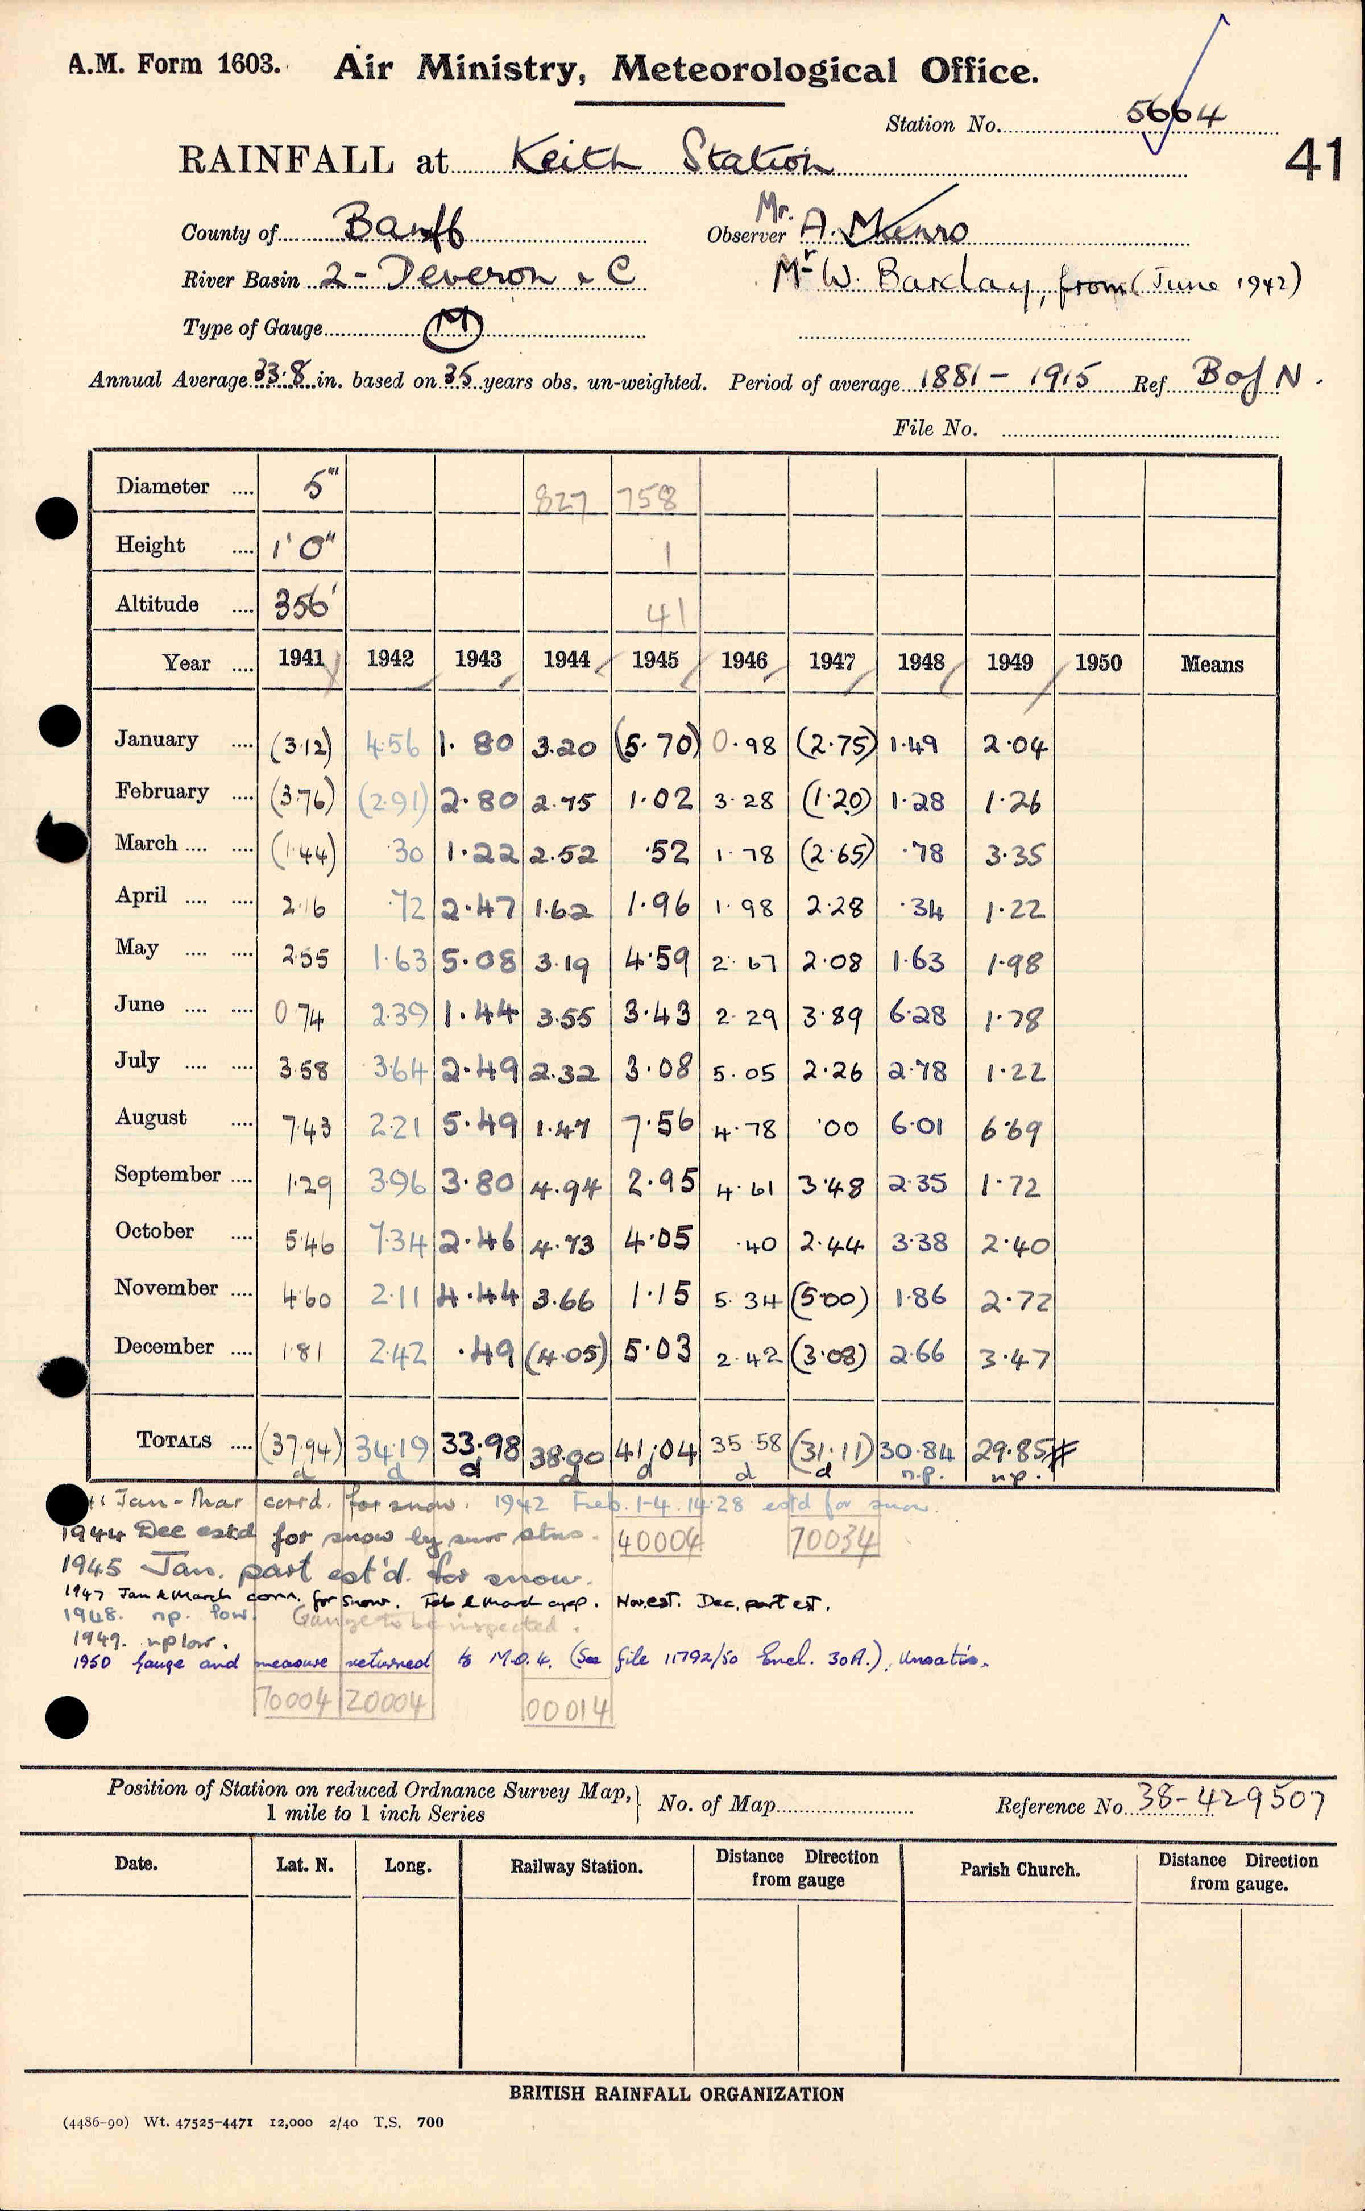 A.M. Form 1603. Air Ministry, Meteorological Office.
Station No. 5664
41
RAINFALL at Keith Station
County of Banff Observer Mr. A. Munro
River Basin 2 - Deveron &C Mr W. Barclay, from (June 1942)
Type of Gauge M
Annual Average 33.8 in. based on 35 years obs. un-weighted. Period of average 1881 - 1915 Ref B of N.
File No.
Diameter .... 5" 827 758
Height .... 1' 0" 1
Altitude .... 356' 41
Year .... 1941 1942 1943 1944 1945 1946 1947 1948 1949 1950 Means
January .... (3.12) 4.56 1.80 3.20 (5.70) 0.98 (2.75) 1.49 2.04
February .... (3.76) (2.91) 2.80 2.75 1.02 3.28 (1.20) 1.28 1.26
March .... .... (1.44) .30 1.22 2.52 .52 1.78 (2.65) .78 3.35
April .... .... 2.16 .72 2.47 1.62 1.96 1.98 2.28 .34 1.22
May .... .... 2.55 1.63 5.08 3.19 4.59 2.67 2.08 1.63 1.98
June .... .... 0.74 2.39 1.44 3.55 3.43 2.29 3.89 6.28 1.78
July .... .... 3.58 3.64 2.49 2.32 3.08 5.05 2.26 2.78 1.22
August .... 7.43 2.21 5.49 1.47 7.56 4.78 .00 6.01 6.69
September .... 1.29 3.96 3.80 4.94 2.95 4.61 3.48 2.35 1.72
October .... 5.46 7.34 2.46 4.73 4.05 .40 2.44 3.38 2.40
November .... 4.60 2.11 4.44 3.66 1.15 5.34 (5.00) 1.86 2.72
December .... 1.81 2.42 .49 (4.05) 5.03 2.42 (3.08) 2.66 3.47
TOTALS .... (37.94) 34.19 33.98 38.00 41.04 35.58 (31.11) 30.84 29.85#
d d d d d d d n.p. n.p.
41 Jan - Mar corrd. for snow. 1942 Feb. 1-4. 14.28 estd for snow.
1944 Dec estd for snow by surr stns. 40004 70034
1945 Jan. part est'd. for snow.
1947 Jan & March corr. for snow. Feb & March app. Nov. est. Dec. part est.
1948. np. low. Gauge to be inspected.
1949. np low.
1950 Gauge and measure returned to M.O.4. (See file 11792/50 Encl. 30A.). Unsatis.
70004 20004 00014
Position of Station on reduced Ordnance Survey Map, 1 mile to 1 inch Series } No. of Map Reference No. 38-429507
Date. Lat. N. Long. Railway Station. Distance Direction from gauge Parish Church. Distance Direction from gauge.
BRITISH RAINFALL ORGANIZATION
(4486-90) Wt. 47525-4471 12,000 2/40 T.S. 700